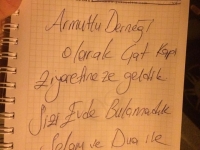 Armutlu Derneği
olarak Çat Kapı
Ziyaretinize geldik
Sizi Evde Bulamadık
Selam ve Dua ile